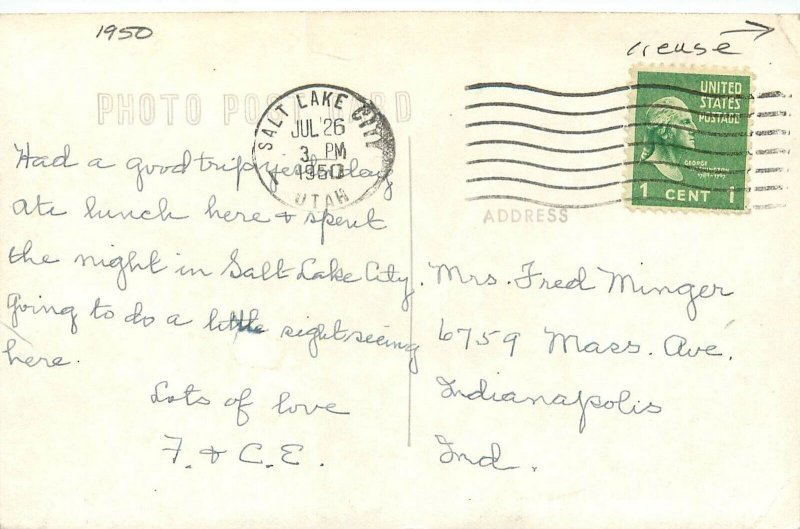 1950
crease
PHOTO POST CARD
SALT LAKE CITY
JUL 26
3 PM
1950
UTAH
UNITED
STATES
POSTAGE
GEORGE
WASHINGTON
1789-1797
1 CENT 1
ADDRESS
Had a good trip yesterday
ate lunch here & spent
the night in Salt Lake City.
Going to do a little sightseeing
here.
Lots of love
F. & C.E.
Mrs. Fred Minger
6759 Mass. Ave.
Indianapolis
Ind.